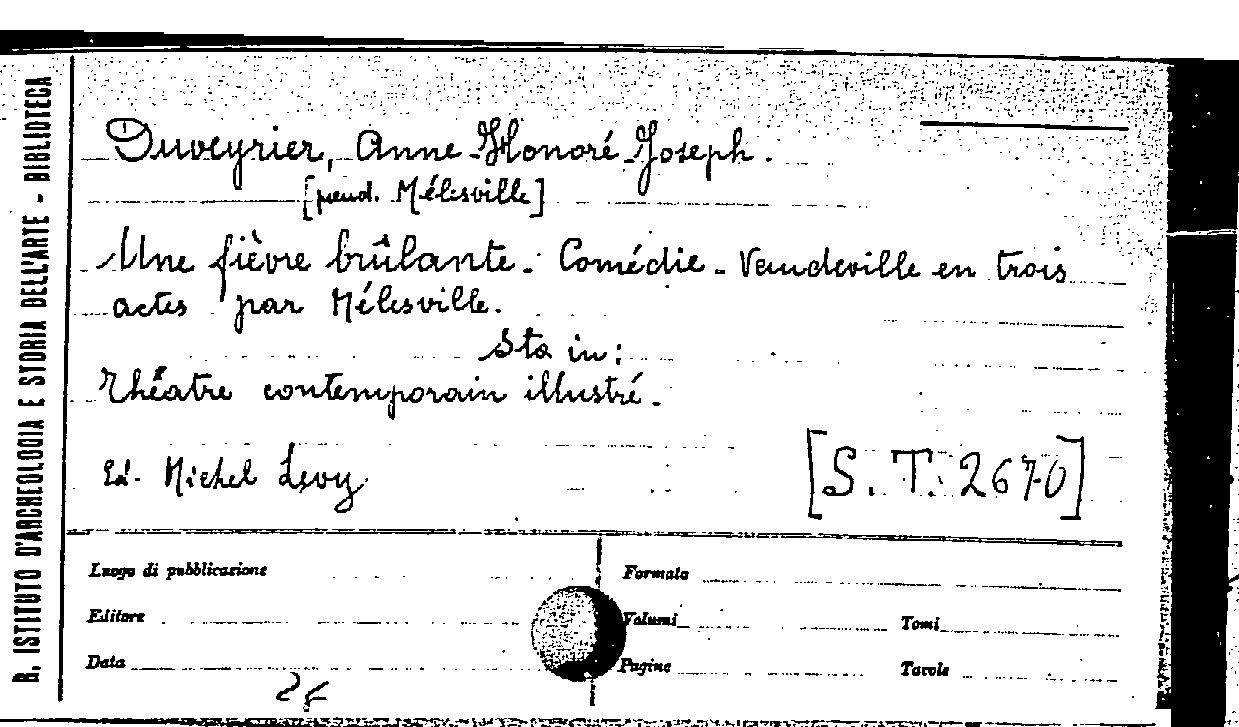 R. ISTITUTO D'ARCHEOLOGIA E STORIA DELL'ARTE - BIBLIOTECA
Duveyrier, Anne-Honoré-Joseph.
[pseud. Mélesville]
Une fièvre brûlante. Comédie-Vaudeville en trois
actes par Mélesville.
Sta in:
Théatre contemporain illustré.
Ed. Michel Levy
[S. T. 2670]
Luogo di pubblicazione
Formato
Editore
Volumi Tomi
Data
Pagine Tavole